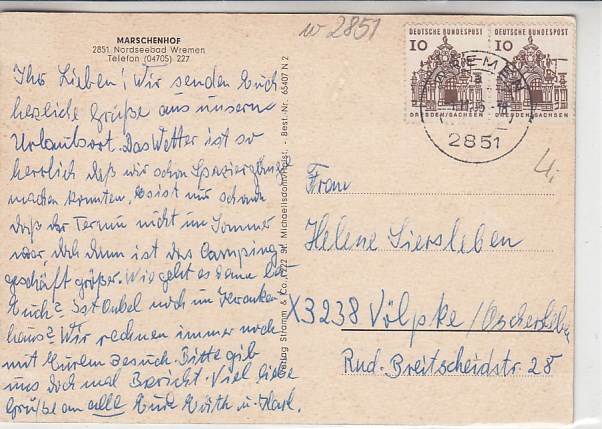 MARSCHENHOF
2851 Nordseebad Wremen
Telefon (04705) 227
w 2851
Ihr Lieben! Wir senden Euch
herzliche Grüße aus unserm
Urlaubsort. Das Wetter ist so
herrlich daß wir schon Spaziergänge
machen konnten. Es ist nur schade
daß der Termin nicht im Sommer
war doch dann ist das Camping-
geschäft größer. Wie geht es denn bei
Euch? Ist Onkel noch im Kranken
haus? Wir rechnen immer noch
mit Eurem Besuch. Bitte gib
uns doch mal Bericht. Viel liebe
Grüße an alle Eure u. Karl.
Verlag Stramm & Co. St. Michaelisdonn/Holst. - Best.-Nr. 65407 N 2
DEUTSCHE BUNDESPOST
10
DRESDEN/SACHSEN
DEUTSCHE BUNDESPOST
10
DRESDEN/SACHSEN
WREMEN
a
2851
Frau
Helene Siersleben
X3238 Völpke/Oschersleben
Rud. Breitscheidstr. 28